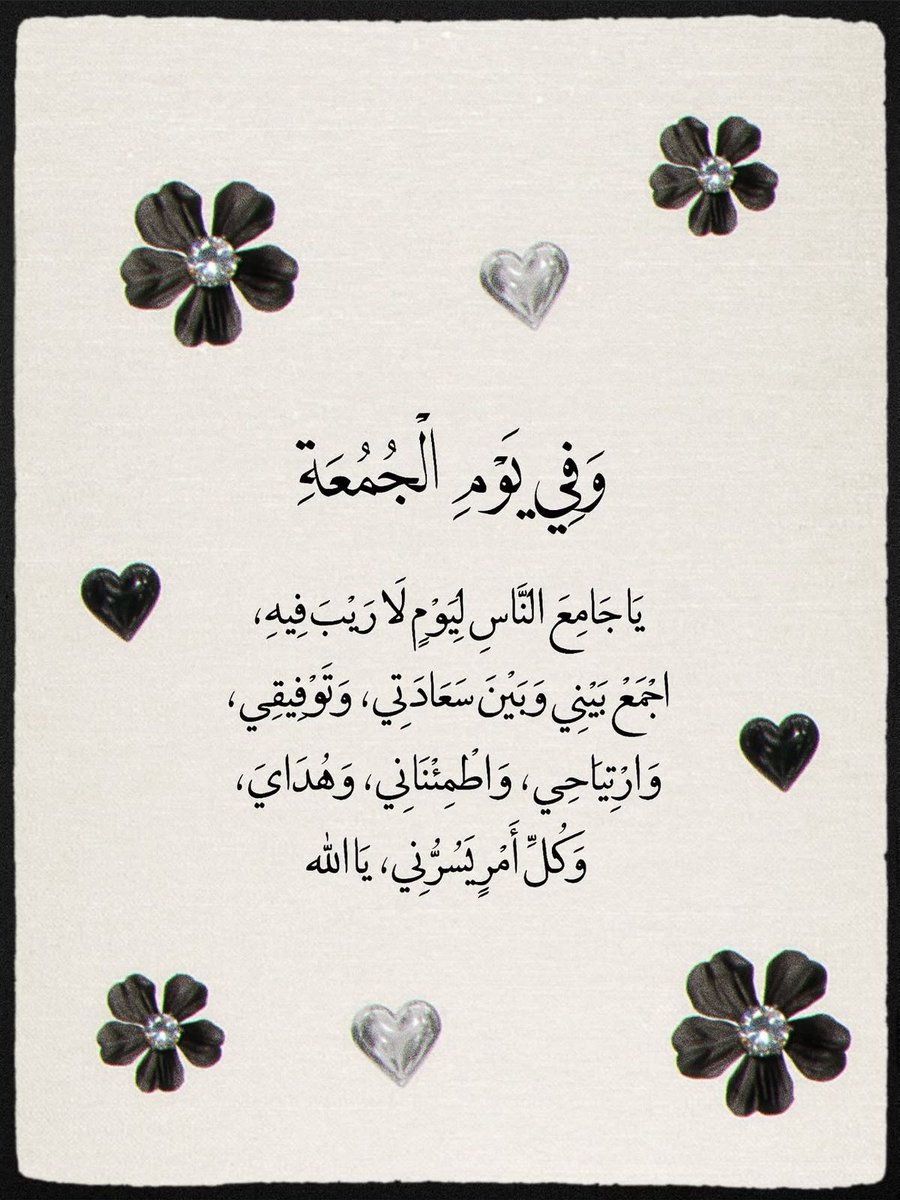 وَفِي يَوْمِ الْجُمُعَةِ
يَا جَامِعَ النَّاسِ لِيَوْمٍ لَا رَيْبَ فِيهِ،
اجْمَعْ بَيْنِي وَبَيْنَ سَعَادَتِي، وَتَوْفِيقِي،
وَارْتِيَاحِي، وَاطْمِئْنَانِي، وَهُدَايَ،
وَكُلِّ أَمْرٍ يَسُرُّنِي، يَا الله